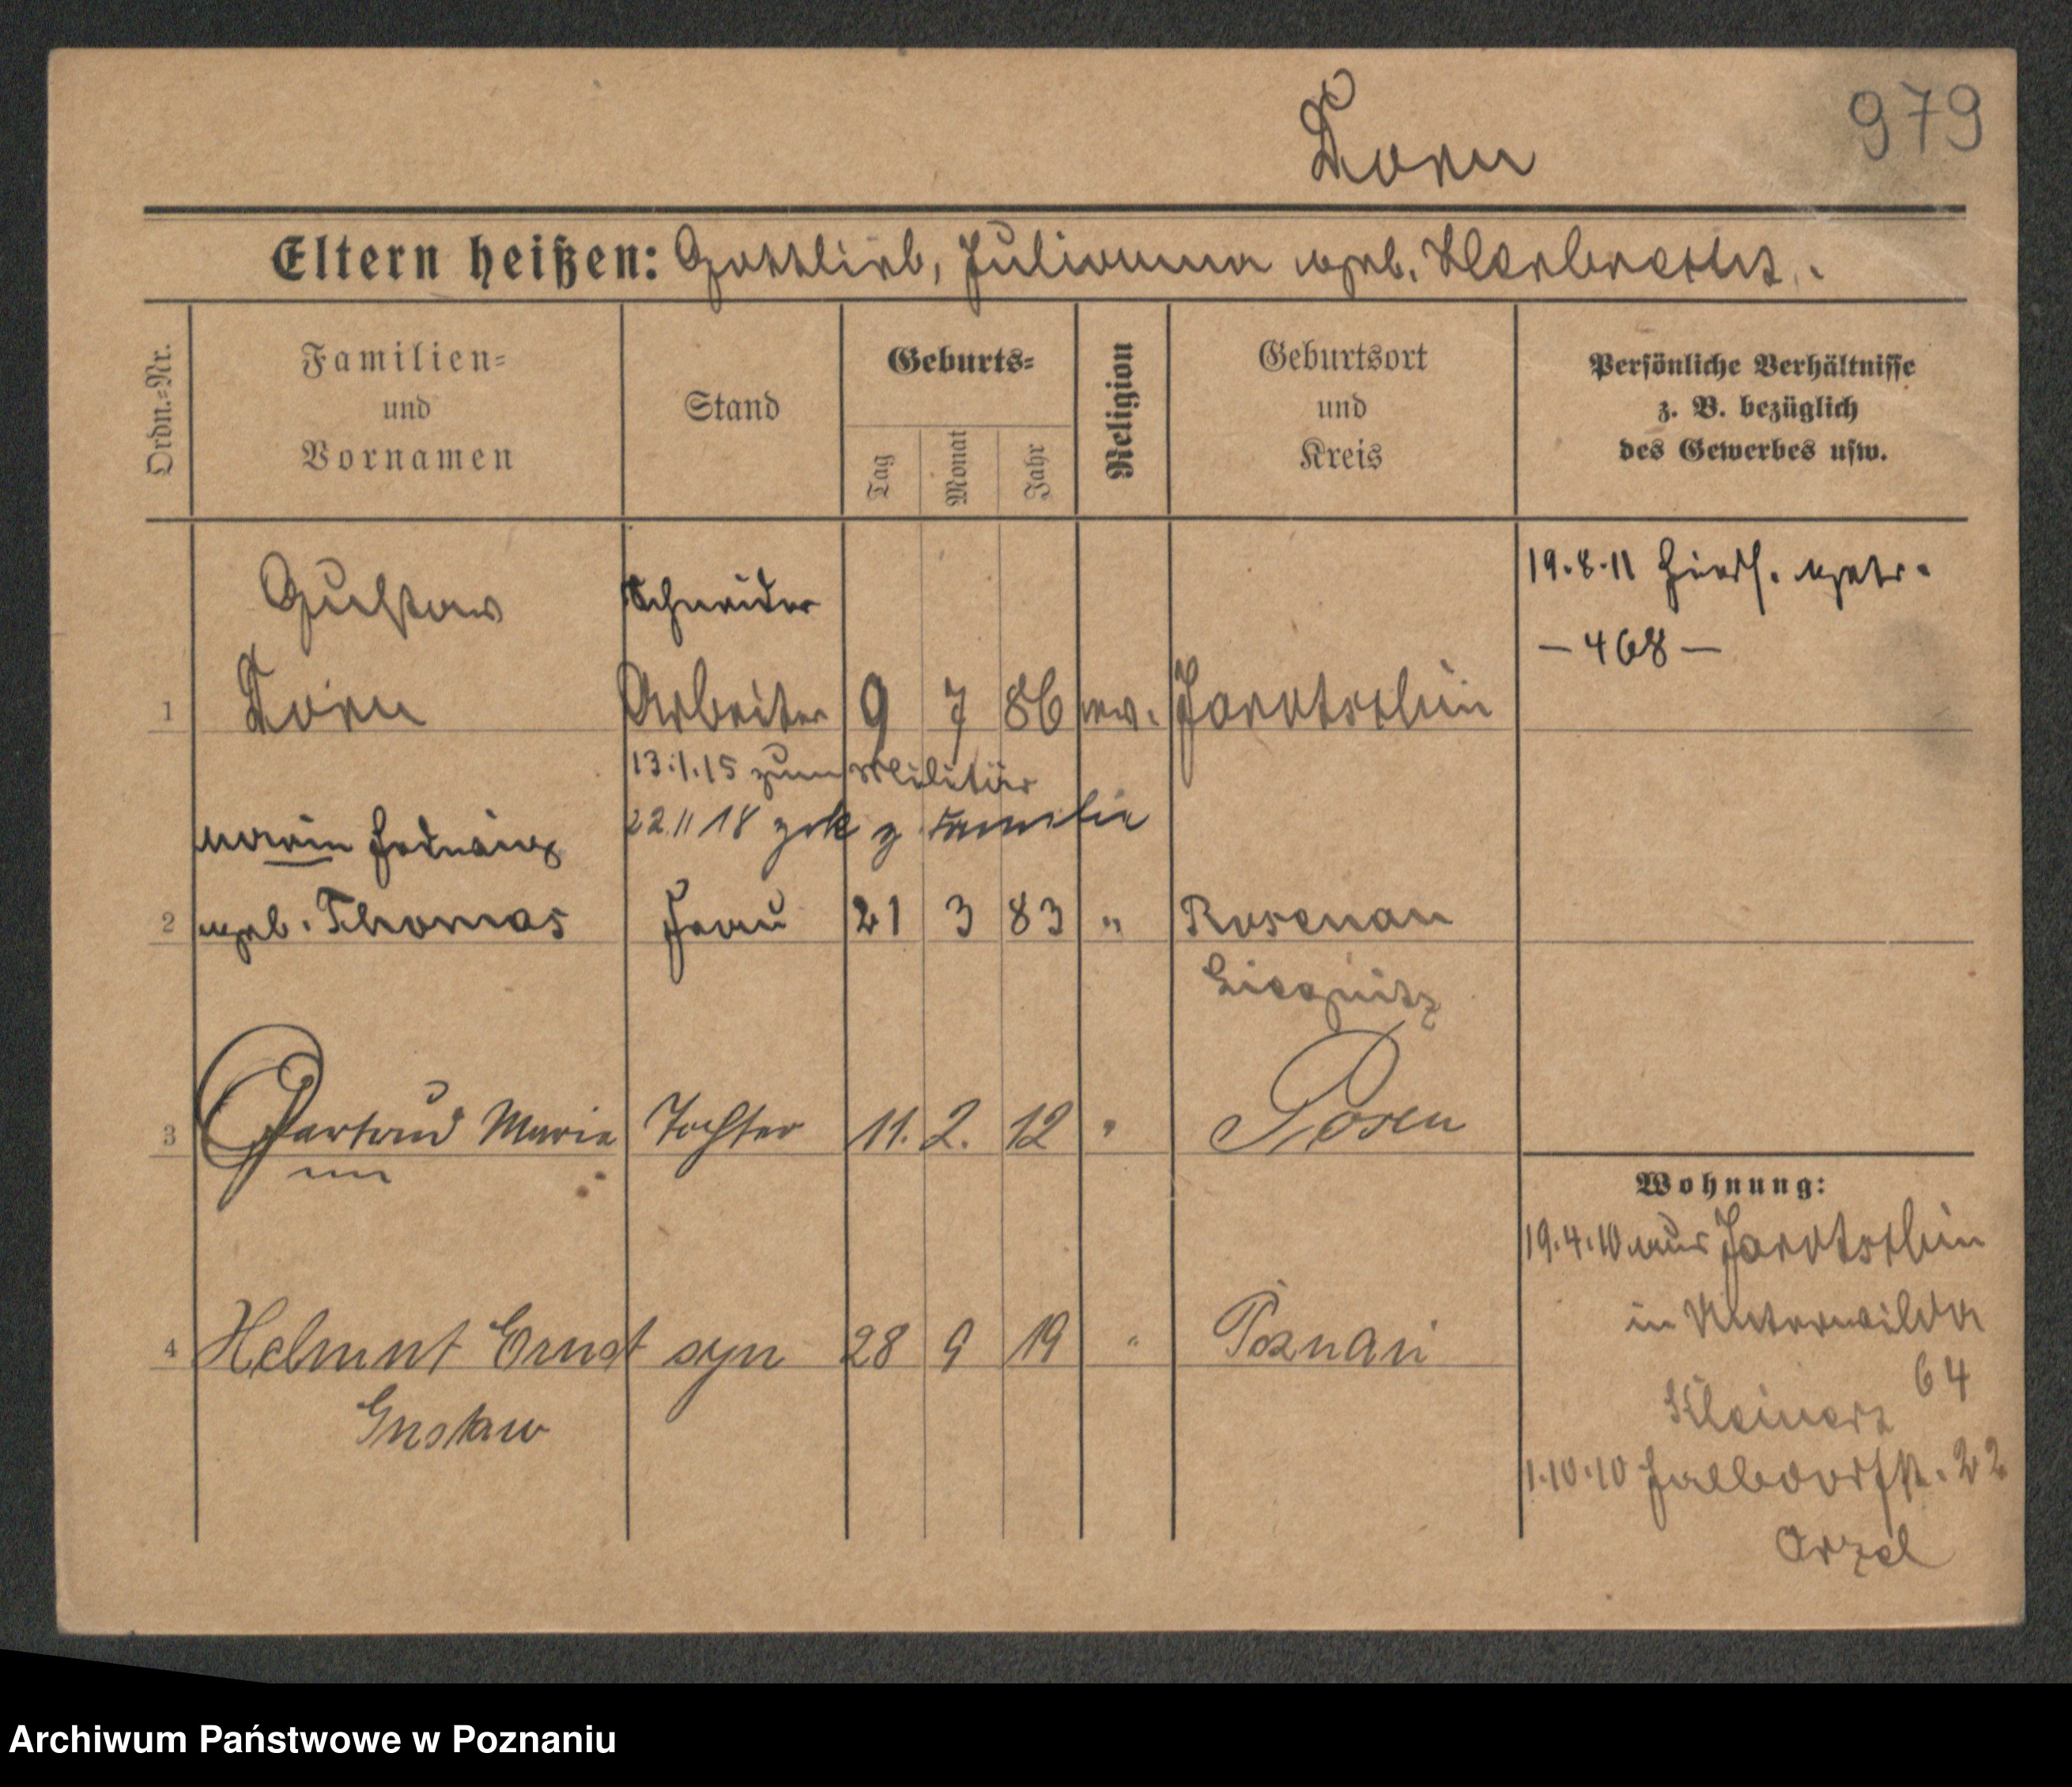 979
Dorn
Eltern heißen: Gottlieb, Julianna geb.
Ordn.-Nr.
Familien-
und
Vornamen
Stand
Geburts-
Tag
Monat
Jahr
Religion
Geburtsort
und
Kreis
Persönliche Verhältnisse
z. B. bezüglich
des Gewerbes usw.
Gustav Schneider 19.8.11 hiers. getr.
- 468 -
1 Dorn Arbeiter 9 7 86 ev. Jarotschin
13.1.15 zum Militär
22.11 18 zrk z Familie
Marie Hedwig
2 geb. Thomas Frau 21 3 83 " Rosenau
Liegnitz
3 Gertrud Marie Tochter 11. 2. 12 " Posen
Wohnung:
19.4.10 aus Jarotschin
in Unterwilda
64
4 Helmut Ernst syn 28 9 19 " Poznań
Gustaw
1.10.10 22